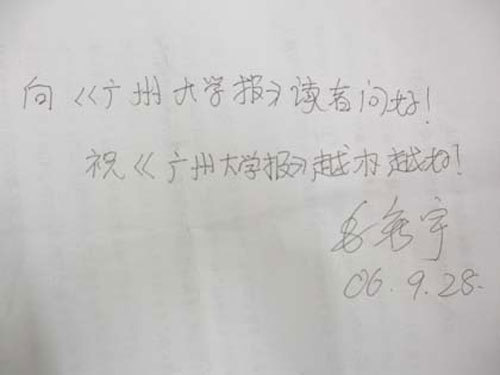 向《广州大学报》读者问好！
祝《广州大学报》越办越好！
06.9.28.